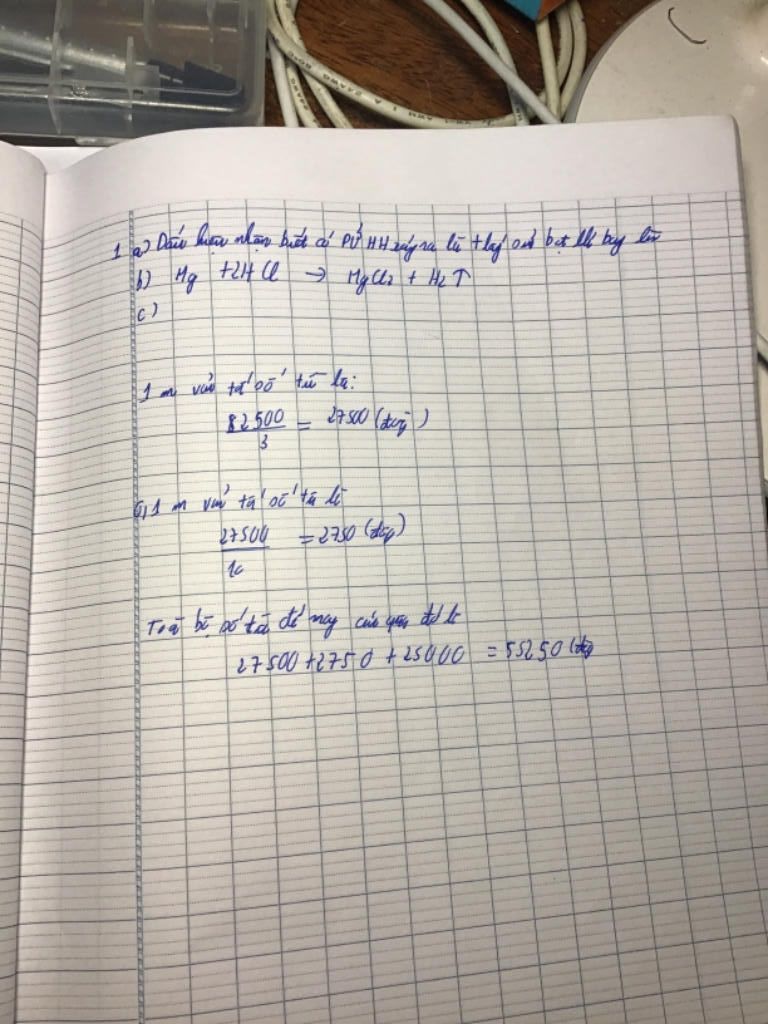 1 a) Dấu hiệu nhận biết có PƯHH xảy ra là thấy bọt khí bay lên
b) Mg + 2HCl → MgCl2 + H2↑
c)
1 m vải
là:
82500/3 = 27500 (đồng)
0,1 m vải
là
27500/10 = 2750 (đồng)
Toàn bộ số để may quần
27500 + 2750 + 25000 = 55250 (đồng